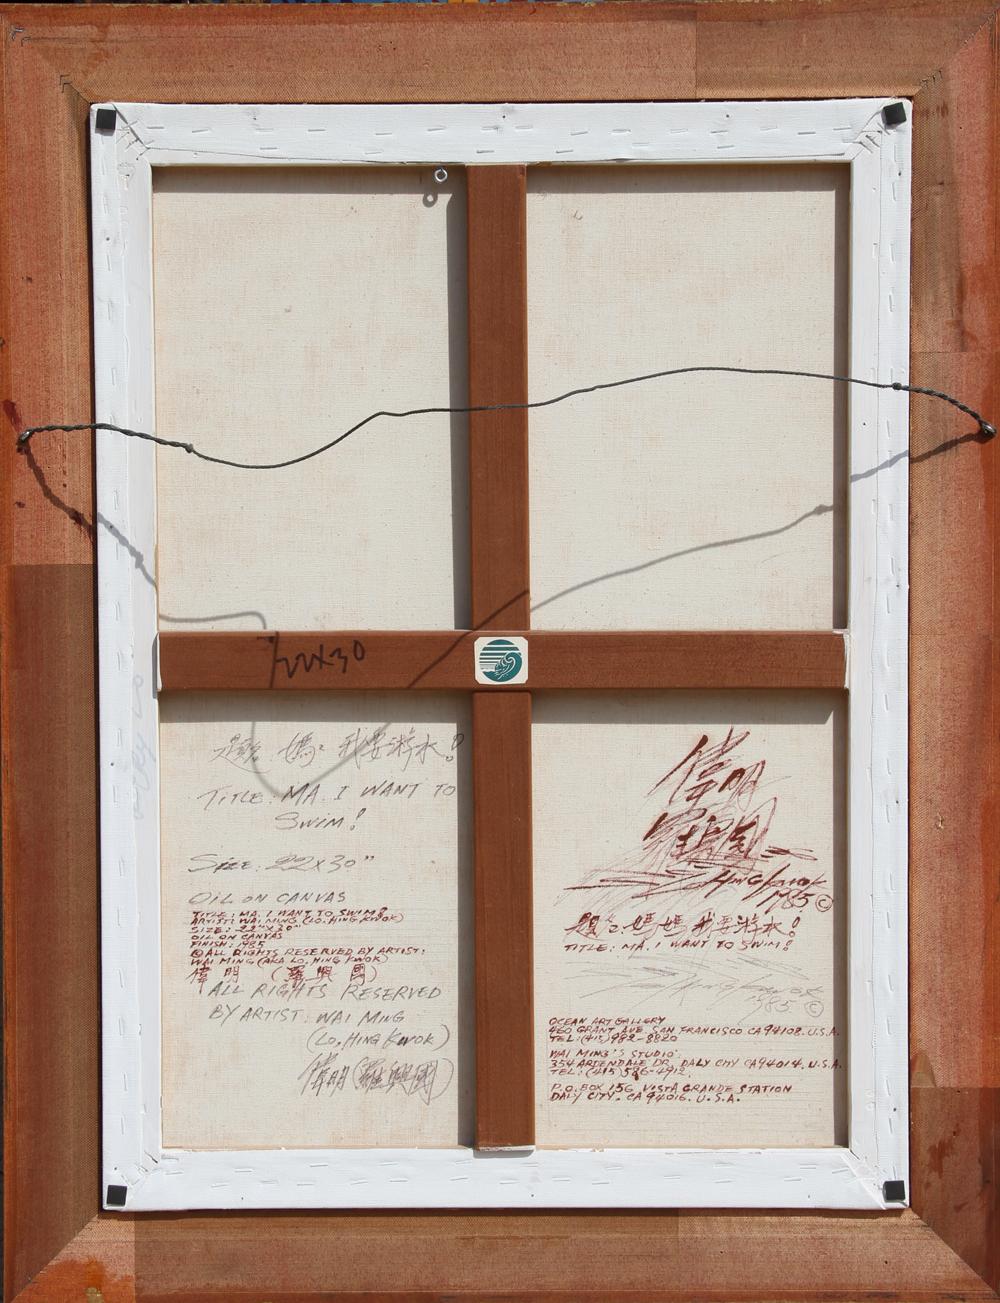 22X30
題: 媽: 我要游水!
TITLE: MA. I WANT TO
SWIM!
SIZE: 22X30"
OIL ON CANVAS
TITLE: MA. I WANT TO SWIM!
ARTIST: WAI MING (LO, HING KWOK)
SIZE: 22"X30"
OIL ON CANVAS
FINISH: 1985
©ALL RIGHTS RESERVED BY ARTIST:
WAI MING (AKA LO, HING KWOK)
偉明 (羅興國)
ALL RIGHTS RESERVED
BY ARTIST: WAI MING
(LO, HING KWOK)
偉明 (羅興國)
偉明
羅興國
HING KWOK
1985 ©
題: 媽媽我要游水!
TITLE: MA. I WANT TO SWIM!
HING KWOK
1985 ©
OCEAN ART GALLERY
460 GRANT AVE. SAN FRANCISCO CA94108. U.S.A.
TEL:(415)982-8820
WAI MING'S STUDIO:
354 ARDENDALE DR. DALY CITY CA94014. U.S.A.
TEL:(415)586-4912.
P.O.BOX 156 VISTA GRANDE STATION
DALY CITY. CA 94016. U.S.A.